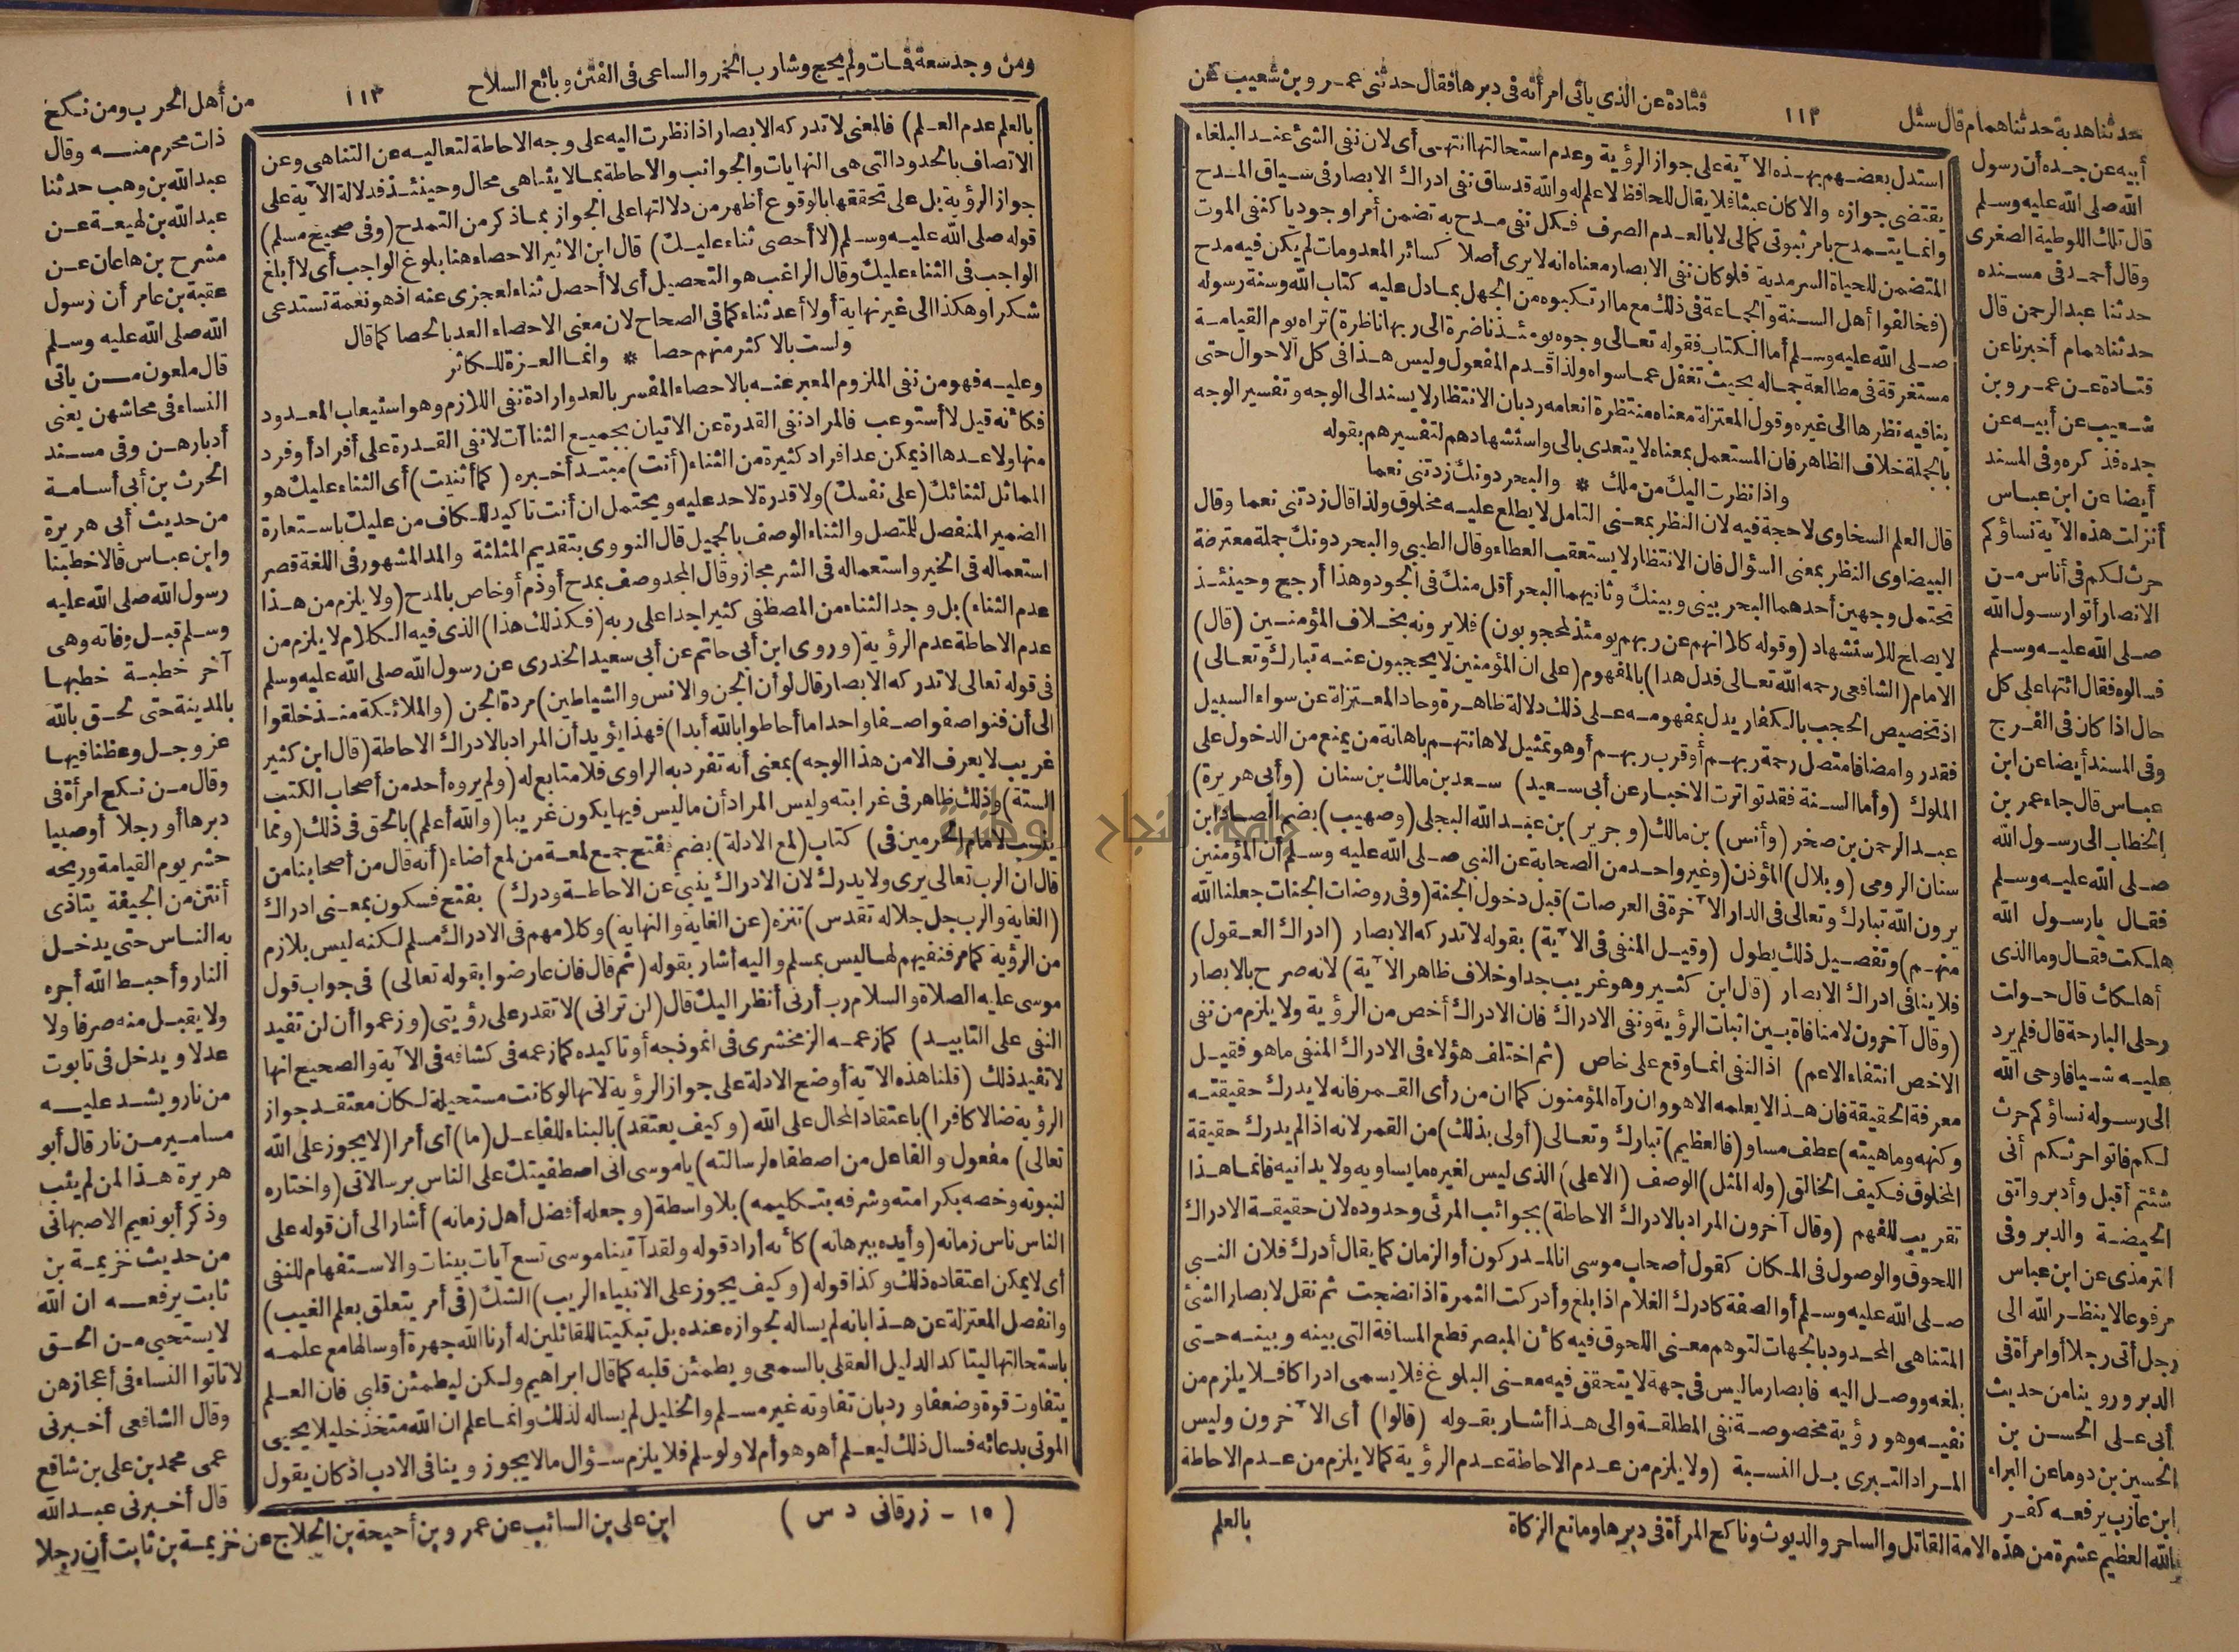 حدثنا هدبة حدثنا همام قال سئل
١١٢
قتادة عن الذى يأتى امرأته فى دبرها فقال حدثنى عمرو بن شعيب عن
أبيه عن جده أن رسول
الله صلى الله عليه وسلم
قال تلك اللوطية الصغرى
وقال أحمد فى مسنده
حدثنا عبد الرحمن قال
حدثنا همام أخبرنا عن
قتادة عن عمرو بن
شعيب عن أبيه عن
جده فذكره وفى المسند
أيضا عن ابن عباس
أنزلت هذه الآية نساؤكم
حرث لكم فى أناس من
الانصار أتوا رسول الله
صلى الله عليه وسلم
فسألوه فقال ائتها على كل
حال اذا كان فى الفرج
وفى المسند أيضا عن ابن
عباس قال جاء عمر بن
الخطاب الى رسول الله
صلى الله عليه وسلم
فقال يارسول الله
هلكت فقال وما الذى
أهلكك قال حولت
رحلى البارحة قال فلم يرد
عليه شيأ فأوحى الله
الى رسوله نساؤكم حرث
لكم فأتوا حرثكم أنى
شئتم أقبل وأدبر واتق
الحيضة والدبر وفى
الترمذى عن ابن عباس
مرفوعا لا ينظر الله الى
رجل أتى رجلا أو امرأة فى
الدبر وروينا من حديث
أبى على الحسن بن
الحسين بن دوما عن البراء
ابن عازب يرفعه كفر
بالله العظيم عشرة من هذه الامة القاتل والساحر والديوث وناكح المرأة فى دبرها ومانع الزكاة
استدل بعضهم بهذه الآية على جواز الرؤية وعدم استحالتها انتهى أى لان نفى الشئ عند البلغاء
يقتضى جوازه والا كان عبثا فلا يقال للحافظ لا علم له والله قد ساق نفى ادراك الابصار فى سياق المدح
وانما يتمدح بأمر ثبوتى كمالى لا بالعدم الصرف فكل نفى مدح به تضمن أمرا وجوديا كنفى الموت
المتضمن للحياة السرمدية فلو كان نفى الابصار معناه انه لا يرى أصلا كسائر المعدومات لم يكن فيه مدح
(فخالفوا أهل السنة والجماعة فى ذلك مع ما ارتكبوه من الجهل بما دل عليه كتاب الله وسنة رسوله
صلى الله عليه وسلم أما الكتاب فقوله تعالى وجوه يومئذ ناضرة الى ربها ناظرة) تراه يوم القيامة
مستغرقة فى مطالعة جماله بحيث تغفل عما سواه ولذا قدم المفعول وليس هذا فى كل الاحوال حتى
ينافيه نظرها الى غيره وقول المعتزلة معناه منتظرة انعامه رد بان الانتظار لا يسند الى الوجه وتفسير الوجه
بالجملة خلاف الظاهر فان المستعمل بمعناه لا يتعدى بالى واستشهادهم لتفسيرهم بقوله
واذا نظرت اليك من ملك * والبحر دونك زدتنى نعما
قال العلم السخاوى لا حجة فيه لان النظر بمعنى التأمل لا يطلع عليه مخلوق ولذا قال زدتنى نعما وقال
البيضاوى النظر بمعنى السؤال فان الانتظار لا يستعقب العطاء وقال الطيبى والبحر دونك جملة معترضة
تحتمل وجهين أحدهما البحر بينى وبينك وثانيهما البحر أقل منك فى الجود وهذا أرجح وحينئذ
لا يصلح للاستشهاد (وقوله كلا انهم عن ربهم يومئذ لمحجوبون) فلا يرونه بخلاف المؤمنين (قال)
الامام (الشافعى رحمه الله تعالى فدل هذا) بالمفهوم (على ان المؤمنين لا يحجبون عنه تبارك وتعالى)
اذ تخصيص الحجب بالكفار يدل بمفهومه على ذلك دلالة ظاهرة وحاد المعتزلة عن سواء السبيل
فقدروا مضافا مثل رحمة ربهم أو قرب ربهم أو هو تمثيل لاهانتهم باهانة من يمنع من الدخول على
الملوك (وأما السنة فقد تواترت الاخبار عن أبى سعيد) سعد بن مالك بن سنان (وأبى هريرة)
عبد الرحمن بن صخر (وأنس) بن مالك (وجرير) بن عبد الله البجلى (وصهيب) بضم الصاد ابن
سنان الرومى (وبلال) المؤذن (وغير واحد من الصحابة عن النبى صلى الله عليه وسلم أن المؤمنين
يرون الله تبارك وتعالى فى الدار الآخرة فى العرصات) قبل دخول الجنة (وفى روضات الجنات جعلنا الله
منهم) وتفصيل ذلك يطول (وقيل المنفى فى الآية) بقوله لا تدركه الابصار (ادراك العقول)
فلا ينافى ادراك الابصار (قال ابن كثير وهو غريب جدا وخلاف ظاهر الآية) لانه صرح بالابصار
(وقال آخرون لا منافاة بين اثبات الرؤية ونفى الادراك فان الادراك أخص من الرؤية ولا يلزم من نفى
الاخص انتفاء الاعم) اذ النفى انما وقع على خاص (ثم اختلف هؤلاء فى الادراك المنفى ما هو فقيل
معرفة الحقيقة فان هذا لا يعلمه الا هو وان رآه المؤمنون كما ان من رأى القمر فانه لا يدرك حقيقته
وكنهه وماهيته) عطف مساو (فالعظيم) تبارك وتعالى (أولى بذلك) من القمر لانه اذا لم يدرك حقيقة
المخلوق فكيف الخالق (وله المثل) الوصف (الاعلى) الذى ليس لغيره ما يساويه ولا يدانيه فانما هذا
تقريب للفهم (وقال آخرون المراد بالادراك الاحاطة) بجوانب المرئى وحدوده لان حقيقة الادراك
اللحوق والوصول فى المكان كقول أصحاب موسى انا لمدركون أو الزمان كما يقال أدرك فلان النبى
صلى الله عليه وسلم أو الصفة كأدرك الغلام اذا بلغ وأدركت الثمرة اذا نضجت ثم نقل لابصار الشئ
المتناهى المحدود بالجهات لتوهم معنى اللحوق فيه كأن المبصر قطع المسافة التى بينه وبينه حتى
بلغه ووصل اليه فابصار ما ليس فى جهة لا يتحقق فيه معنى البلوغ فلا يسمى ادراكا فلا يلزم من
نفيه وهو رؤية مخصوصة نفى المطلقة والى هذا أشار بقوله (قالوا) أى الآخرون وليس
المراد التبرى بل النسبة (ولا يلزم من عدم الاحاطة عدم الرؤية كما لا يلزم من عدم الاحاطة
بالعلم
ومن وجد سعة فمات ولم يحج وشارب الخمر والساعى فى الفتن وبائع السلاح
١١٣
من أهل الحرب ومن نكح
بالعلم عدم العلم) فالمعنى لا تدركه الابصار اذا نظرت اليه على وجه الاحاطة لتعاليه عن التناهى وعن
الاتصاف بالحدود التى هى النهايات والجوانب والاحاطة بما لا يتناهى محال وحينئذ فدلالة الآية على
جواز الرؤية بل على تحققها بالوقوع أظهر من دلالتها على الجواز بما ذكر من التمدح (وفى صحيح مسلم)
قوله صلى الله عليه وسلم (لا أحصى ثناء عليك) قال ابن الاثير الاحصاء هنا بلوغ الواجب أى لا أبلغ
الواجب فى الثناء عليك وقال الراغب هو التحصيل أى لا أحصل ثناء لعجزى عنه اذ هو نعمة تستدعى
شكرا وهكذا الى غير نهاية أو لا أعد ثناء كما فى الصحاح لان معنى الاحصاء العد بالحصا كما قال
ولست بالاكثر منهم حصا * وانما العزة للكاثر
وعليه فهو من نفى الملزوم المعبر عنه بالاحصاء المفسر بالعد وارادة نفى اللازم وهو استيعاب المعدود
فكأنه قيل لا أستوعب فالمراد نفى القدرة عن الاتيان بجميع الثناآت لا نفى القدرة على أفراد أو فرد
منها ولا عدها اذ يمكن عد افراد كثيرة من الثناء (أنت) مبتدأ خبره (كما أثنيت) أى الثناء عليك هو
المماثل لثنائك (على نفسك) ولا قدرة لاحد عليه ويحتمل ان أنت تأكيد للكاف من عليك باستعارة
الضمير المنفصل للمتصل والثناء الوصف بالجميل قال النووى بتقديم المثلثة والمد المشهور فى اللغة قصر
استعماله فى الخير واستعماله فى الشر مجاز وقال المجد وصف بمدح أو ذم أو خاص بالمدح (ولا يلزم من هذا
عدم الثناء) بل وجد الثناء من المصطفى كثيرا جدا على ربه (فكذلك هذا) الذى فيه الكلام لا يلزم من
عدم الاحاطة عدم الرؤية (وروى ابن أبى حاتم عن أبى سعيد الخدرى عن رسول الله صلى الله عليه وسلم
فى قوله تعالى لا تدركه الابصار قال لو أن الجن والانس والشياطين) مردة الجن (والملائكة منذ خلقوا
الى أن فنوا صفوا صفا واحدا ما أحاطوا بالله أبدا) فهذا يؤيد أن المراد بالادراك الاحاطة (قال ابن كثير
غريب لا يعرف الا من هذا الوجه) بمعنى أنه تفرد به الراوى فلا متابع له (ولم يروه أحد من أصحاب الكتب
الستة) وذلك ظاهر فى غرابته وليس المراد أن ما ليس فيها يكون غريبا (والله أعلم) بالحق فى ذلك (ومما
ينسب لامام الحرمين فى) كتاب (لمع الادلة) بضم ففتح جمع لمعة من لمع أضاء (أنه قال من أصحابنا من
قال ان الرب تعالى يرى ولا يدرك لان الادراك ينبئ عن الاحاطة ودرك) بفتح فسكون بمعنى ادراك
(الغاية والرب جل جلاله تقدس) تنزه (عن الغاية والنهاية) وكلامهم فى الادراك مسلم لكنه ليس بلازم
من الرؤية كما مر فنفيهم لها ليس بمسلم واليه أشار بقوله (ثم قال فان عارضوا بقوله تعالى) فى جواب قول
موسى عليه الصلاة والسلام رب أرنى أنظر اليك قال (لن ترانى) لا تقدر على رؤيتى (وزعموا أن لن تفيد
النفى على التأبيد) كما زعمه الزمخشرى فى انموذجه أو تاكيده كما زعمه فى كشافه فى الآية والصحيح انها
لا تفيد ذلك (قلنا هذه الآية أوضح الادلة على جواز الرؤية لانها لو كانت مستحيلة لكان معتقد جواز
الرؤية ضالا كافرا) باعتقاد المحال على الله (وكيف يعتقد) بالبناء للفاعل (ما) أى أمرا (لا يجوز على الله
تعالى) مفعول والفاعل من اصطفاه لرسالته) ياموسى انى اصطفيتك على الناس برسالاتى (واختاره
لنبوته وخصه بكرامته وشرفه بتكليمه) بلا واسطة (وجعله أفضل أهل زمانه) أشار الى أن قوله على
الناس ناس زمانه (وأيده ببرهانه) كأنه أراد قوله ولقد آتينا موسى تسع آيات بينات والاستفهام للنفى
أى لا يمكن اعتقاده ذلك وكذا قوله (وكيف يجوز على الانبياء الريب) الشك (فى أمر يتعلق بعلم الغيب)
وانفصل المعتزلة عن هذا بانه لم يسأله لجوازه عنده بل تبكيتا للقائلين له أرنا الله جهرة أو سألها مع علمه
باستحالتها ليتأكد الدليل العقلى بالسمعى ويطمئن قلبه كما قال ابراهيم ولكن ليطمئن قلبى فان العلم
يتفاوت قوة وضعفا ورد بان تفاوته غير مسلم والخليل لم يسأله لذلك وانما علم ان الله متخذ خليلا يحيى
الموتى بدعائه فسأل ذلك ليعلم أهو هو أم لا ولو سلم فلا يلزم سؤال ما لا يجوز وينافى الادب اذ كان يقول
(١٥ - زرقانى د س)
ذات محرم منه وقال
عبد الله بن وهب حدثنا
عبد الله بن لهيعة عن
مشرح بن هاعان عن
عقبة بن عامر أن رسول
الله صلى الله عليه وسلم
قال ملعون من يأتى
النساء فى محاشهن يعنى
أدبارهن وفى مسند
الحرث بن أبى أسامة
من حديث أبى هريرة
وابن عباس قالا خطبنا
رسول الله صلى الله عليه
وسلم قبل وفاته وهى
آخر خطبة خطبها
بالمدينة حتى لحق بالله
عز وجل وعظنا فيها
وقال من نكح امرأة فى
دبرها أو رجلا أو صبيا
حشر يوم القيامة وريحه
أنتن من الجيفة يتأذى
به الناس حتى يدخل
النار وأحبط الله أجره
ولا يقبل منه صرفا ولا
عدلا ويدخل فى تابوت
من نار ويشد عليه
مسامير من نار قال أبو
هريرة هذا لمن لم يتب
وذكر أبو نعيم الاصبهانى
من حديث خزيمة بن
ثابت يرفعه ان الله
لا يستحيى من الحق
لا تأتوا النساء فى أعجازهن
وقال الشافعى أخبرنى
عمى محمد بن على بن شافع
قال أخبرنى عبد الله
ابن على بن السائب عن عمرو بن أحيحة بن الجلاح عن خزيمة بن ثابت أن رجلا
جامعة النجاح الوطنية